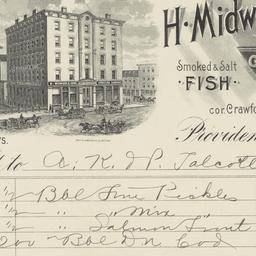 H. Midw
Smoked & Salt
FISH
cor. Crawfo
Providen
to A. K. P. Talcott
1/2 Bbl Fine Pickles
1/2 " " Mix "
1/2 " Salmon Trout
200 " Bbl D N Cod